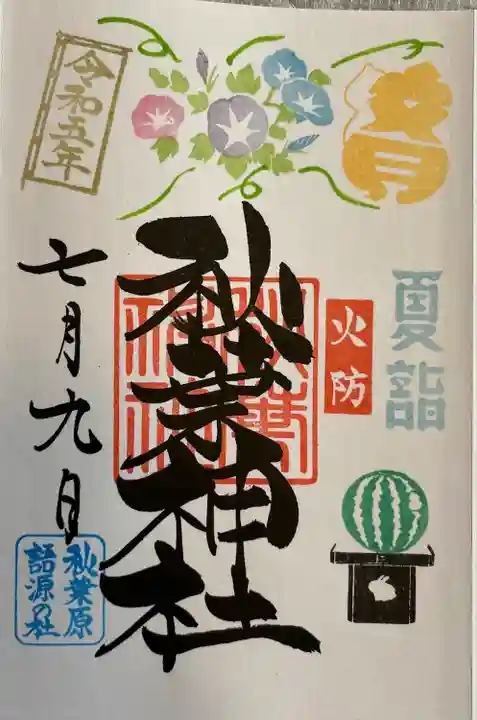 夏詣
火防
秋葉神社
秋葉
神社
令和五年
七月九日
秋葉原
語源の社